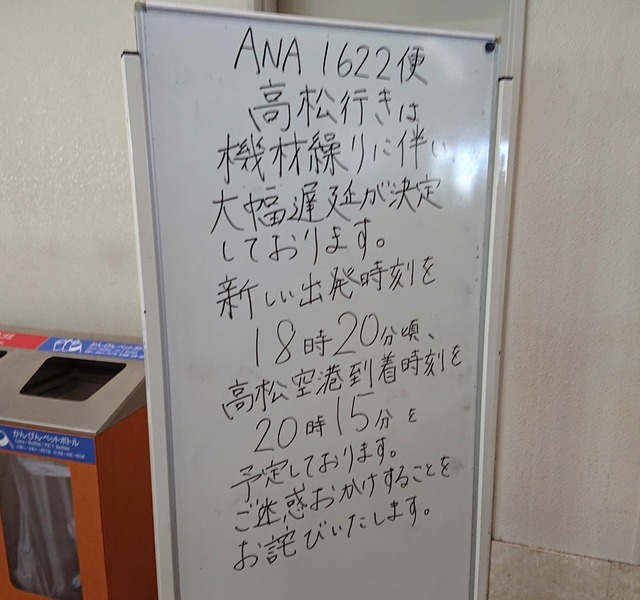 ANA 1622便
高松行きは
機材繰りに伴い
大幅遅延が決定
しております。
新しい出発時刻を
18時20分頃、
高松空港到着時刻を
20時15分を
予定しております。
ご迷惑おかけすることを
お詫びいたします。
かんびんペットボトル